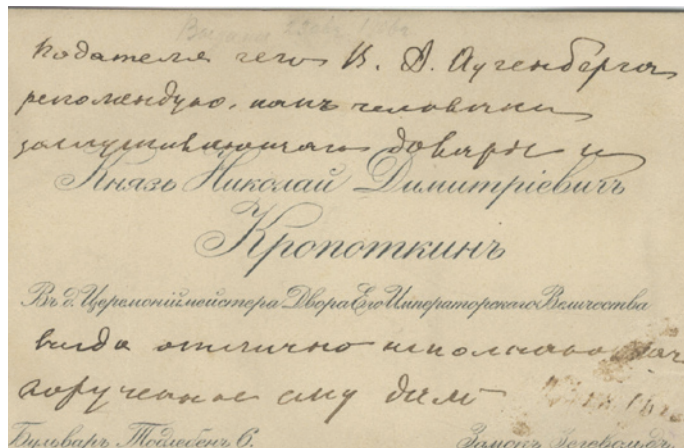 Выдана 1906 г
Подателя сего В. А. Аугенберга
рекомендую, какъ человѣка
заслуживающаго довѣрiя и
Князь Николай Димитріевичъ
Кропоткинъ
Въ д. Церемоніймейстера Двора Его Императорскаго Величества
всегда отлично исполнявшаго
порученное ему дѣло
Бульваръ Тодлебенъ 6.
Замокъ Зегевольдъ.